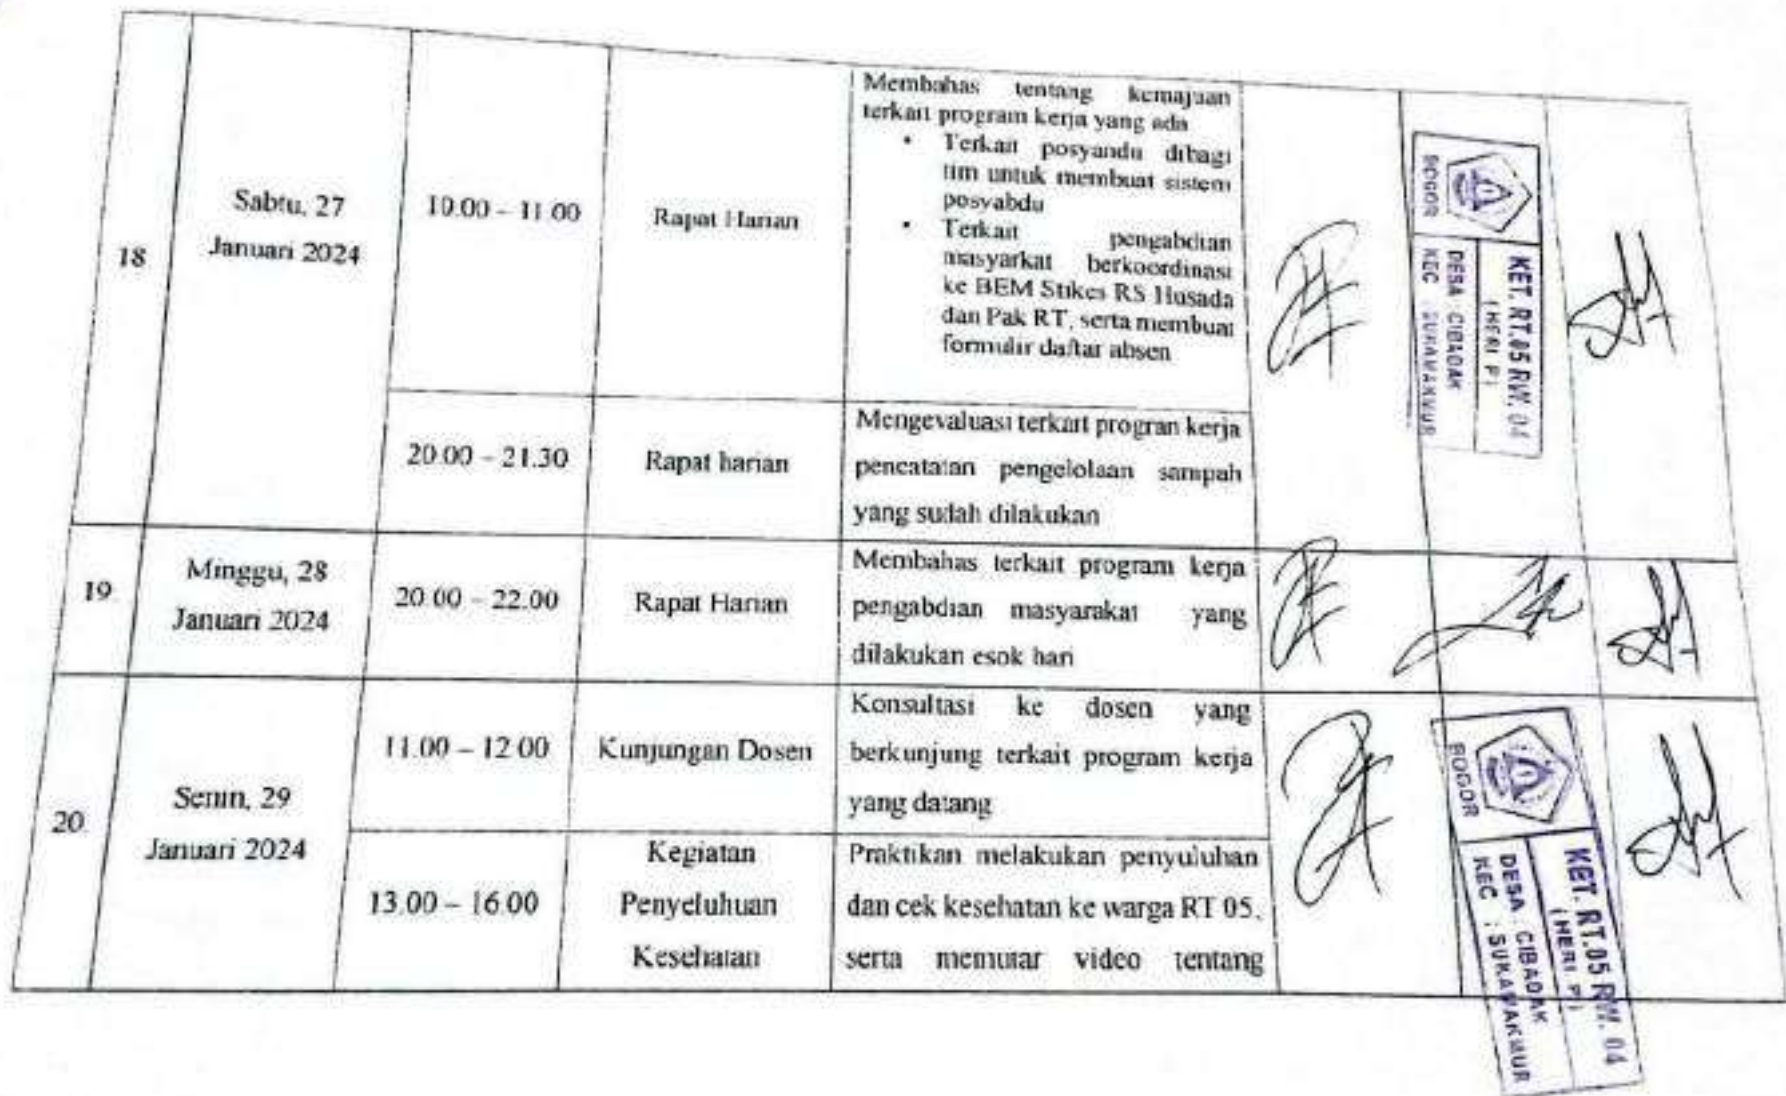 18
Sabtu, 27
Januari 2024
10.00 – 11.00
Rapat Harian
Membahas tentang kemajuan
terkait program kerja yang ada
• Terkait posyandu dibagi
tim untuk membuat sistem
posyabdu
• Terkait pengabdian
masyarkat berkoordinasi
ke BEM Stikes RS Husada
dan Pak RT, serta membuat
formulir daftar absen
BOGOR
KET. RT.05 RW. 04
(HERI P)
DESA : CIBADAK
KEC : SUKAMAKMUR
20.00 – 21.30
Rapat harian
Mengevaluasi terkait progran kerja
pencatatan pengelolaan sampah
yang sudah dilakukan
19.
Minggu, 28
Januari 2024
20.00 – 22.00
Rapat Harian
Membahas terkait program kerja
pengabdian masyarakat yang
dilakukan esok hari
20.
Senin, 29
Januari 2024
11.00 – 12.00
Kunjungan Dosen
Konsultasi ke dosen yang
berkunjung terkait program kerja
yang datang
13.00 – 16.00
Kegiatan
Penyeluhuan
Kesehatan
Praktikan melakukan penyuluhan
dan cek kesehatan ke warga RT 05,
serta memutar video tentang
BOGOR
KET. RT.05 RW. 04
(HERI P)
DESA : CIBADAK
KEC : SUKAMAKMUR